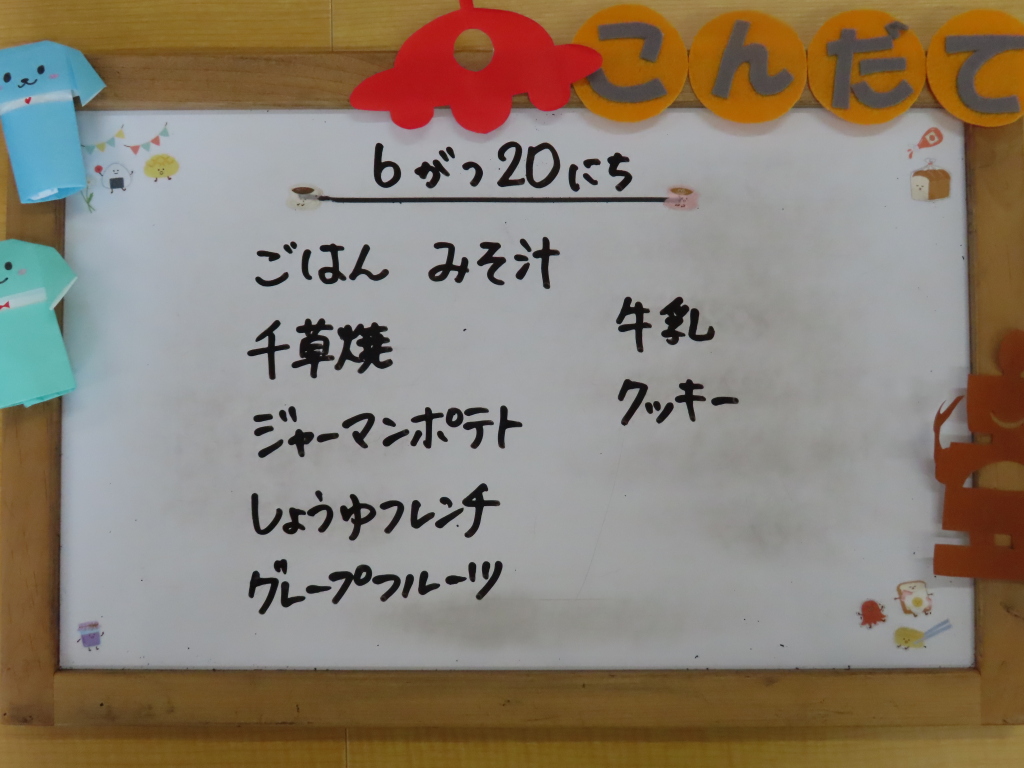 こんだて
6がつ20にち
ごはん みそ汁
千草焼
ジャーマンポテト
しょうゆフレンチ
グレープフルーツ
牛乳
クッキー